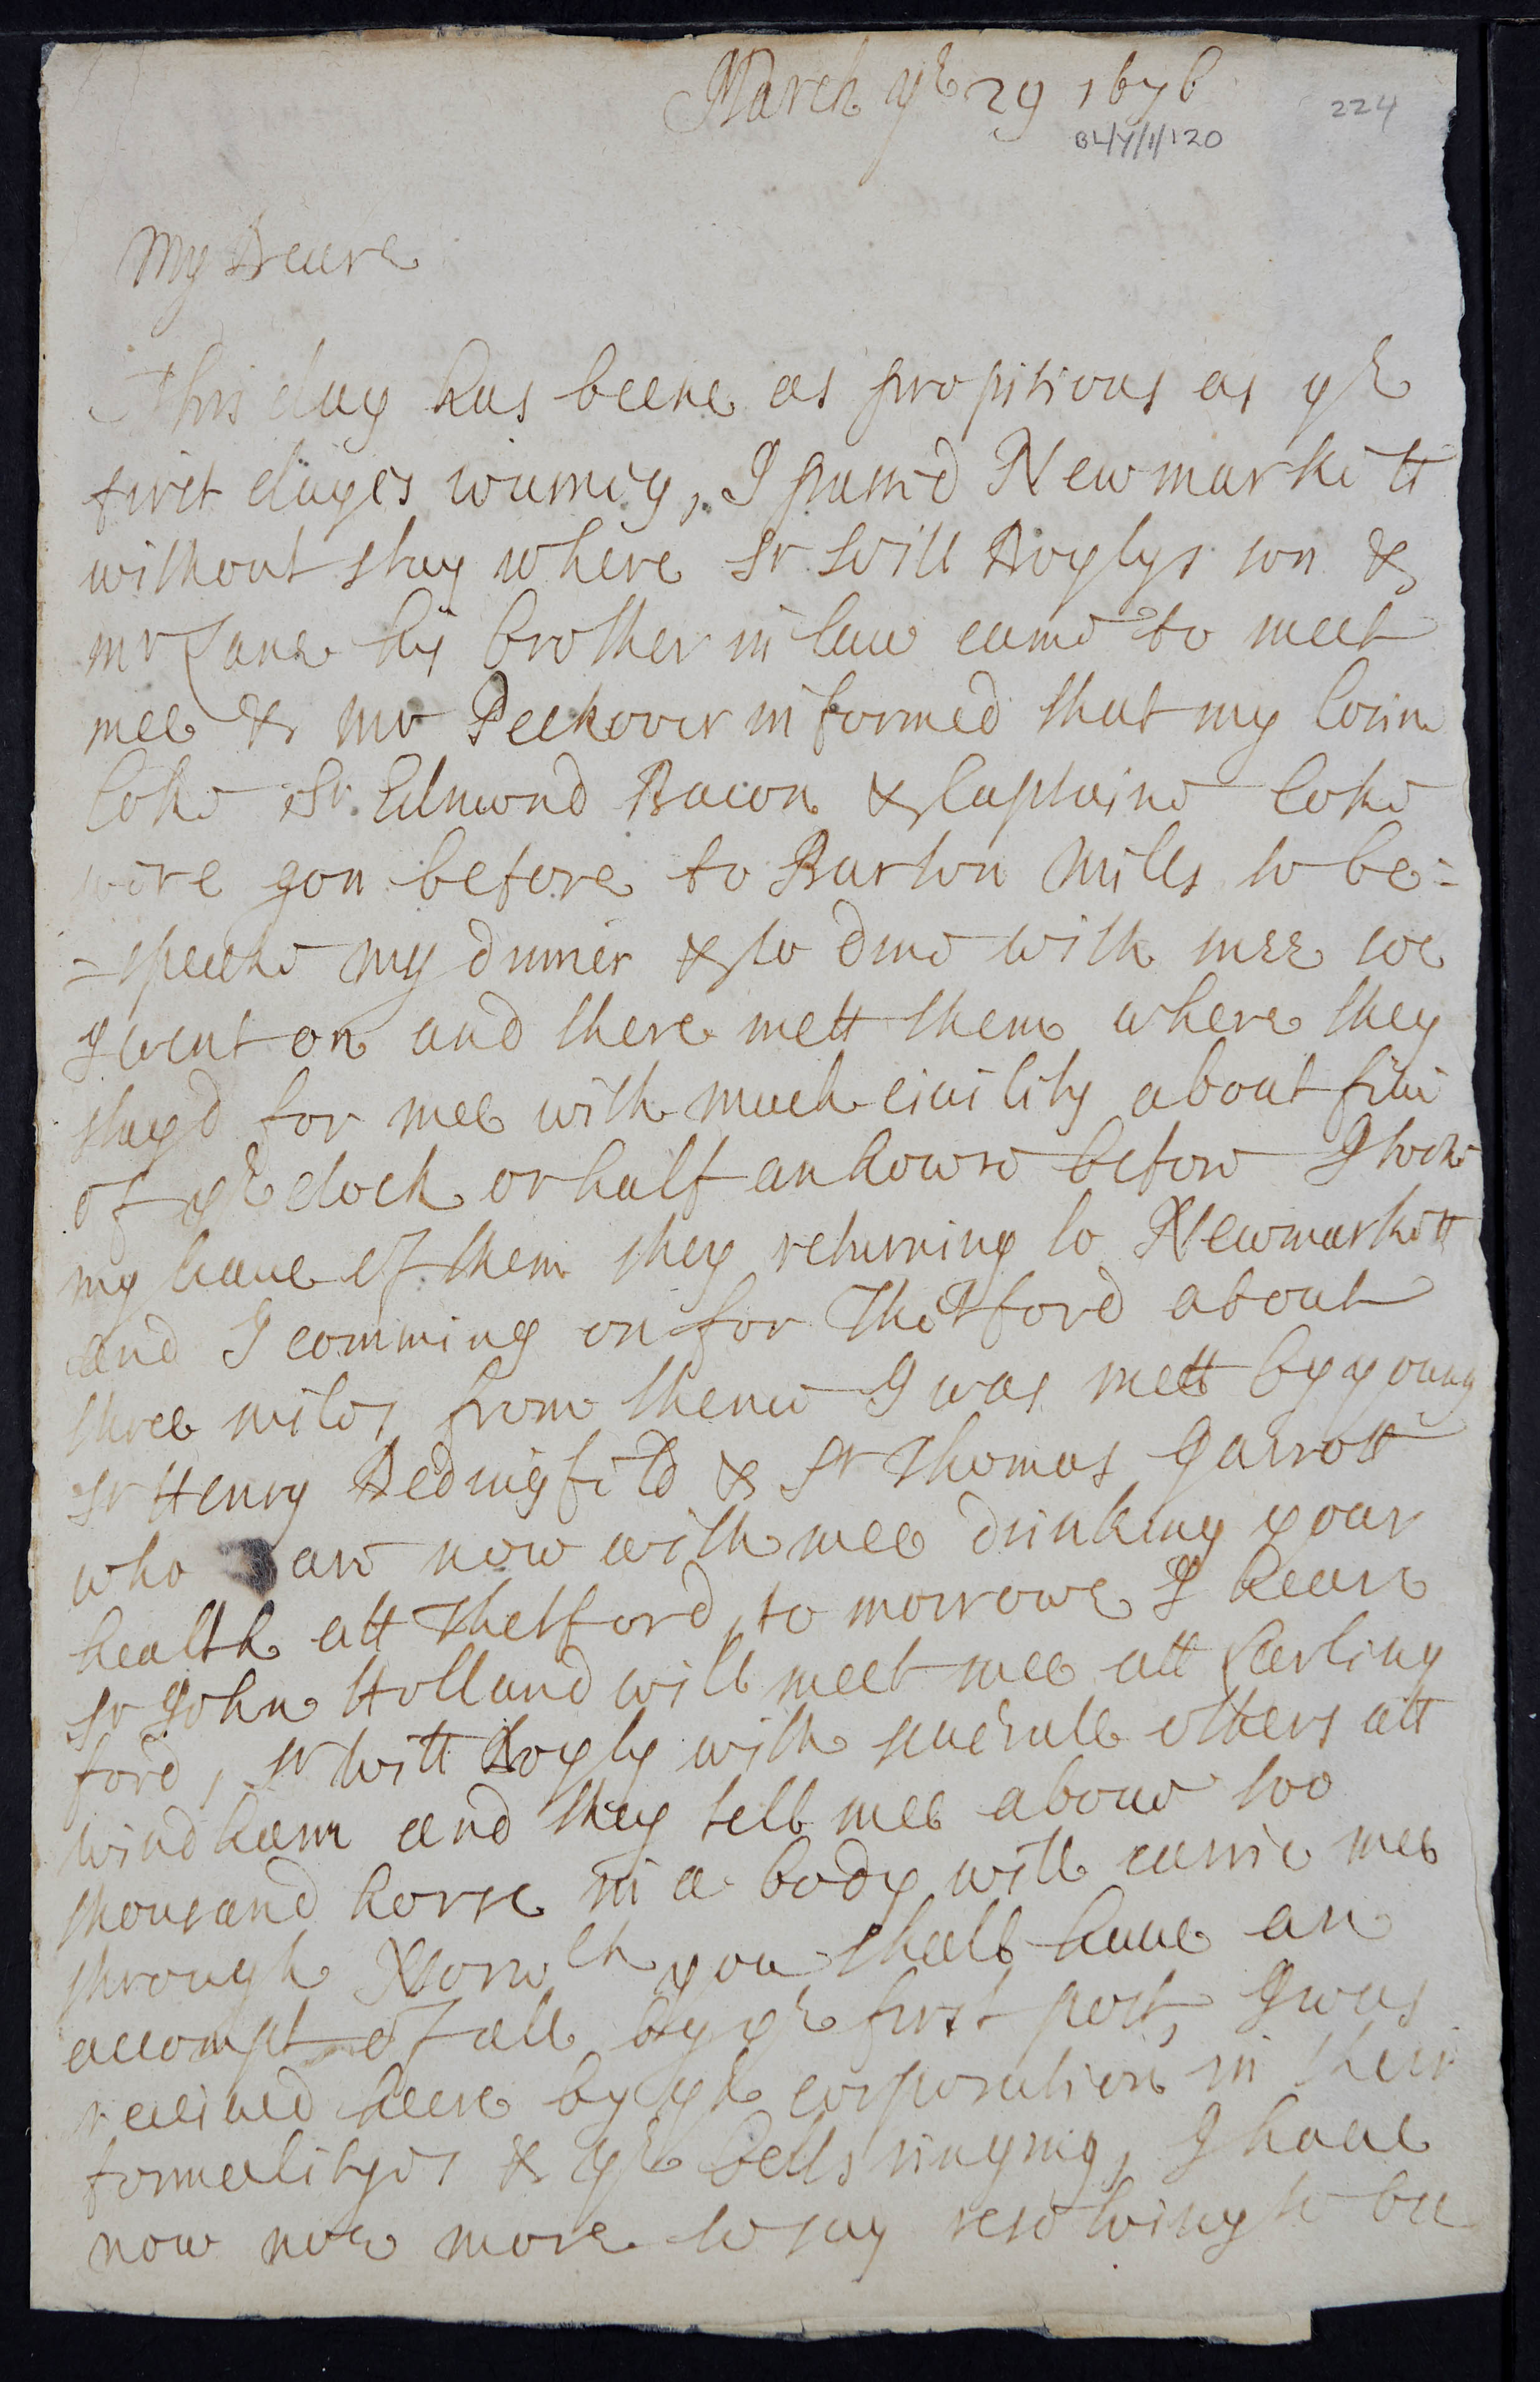 March ye 29 1676
224
BL/Y/1/120
My Deare
This day has beene as propitious as ye
first dayes iourney, I passed Newmarkitt
without stay where Sr Will Doylys son &
mr Lane his brother in law came to meet
mee & mr Peckover informed that my Cosin
Coke Sr Edmond Bacon & Captaine Coke
were gon before to Barton Mills to be=
=speake my dinner & to dine with mee soe
I went on and there mett them where they
stayd for mee with much ciuility about fiue
of ye clock or half an howre before I tooke
my leaue of them they returning to Newmarkitt
and I comming on for Thetford about
three miles from thence I was mett by young
Sr Henry Bedingfild & Sr Thomas Garrott
who are now with mee drinking your
health att Thetford, to morrowe I heare
Sr John Holland will meet mee att Larling
ford, Sr Will Doyly with seuerale others att
windham and they tell mee aboue two
thousand horse in a body will carrie mee
through Norwch you shall haue an
accompt of all by ye first post, I was
receiued heere by ye corporation in their
formalityes & ye bells ringing, I haue
now noe more to say resolving to bee